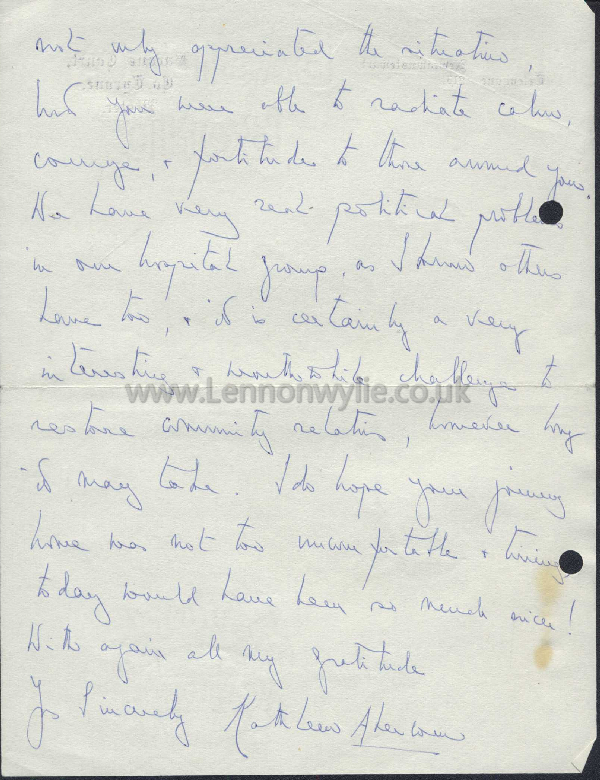 not only appreciated the situation,
but you were able to radiate calm,
courage, & fortitude to those around you.
We have very real political problems
in our hospital group, as I know others
have too, & it is certainly a very
interesting & worthwhile challenge to
www.Lennonwylie.co.uk
restore community relations, however long
it may take. I do hope your journey
home was not too uncomfortable & tiring
today would have been so much nicer!
With again all my gratitude
Yrs Sincerely Kathleen